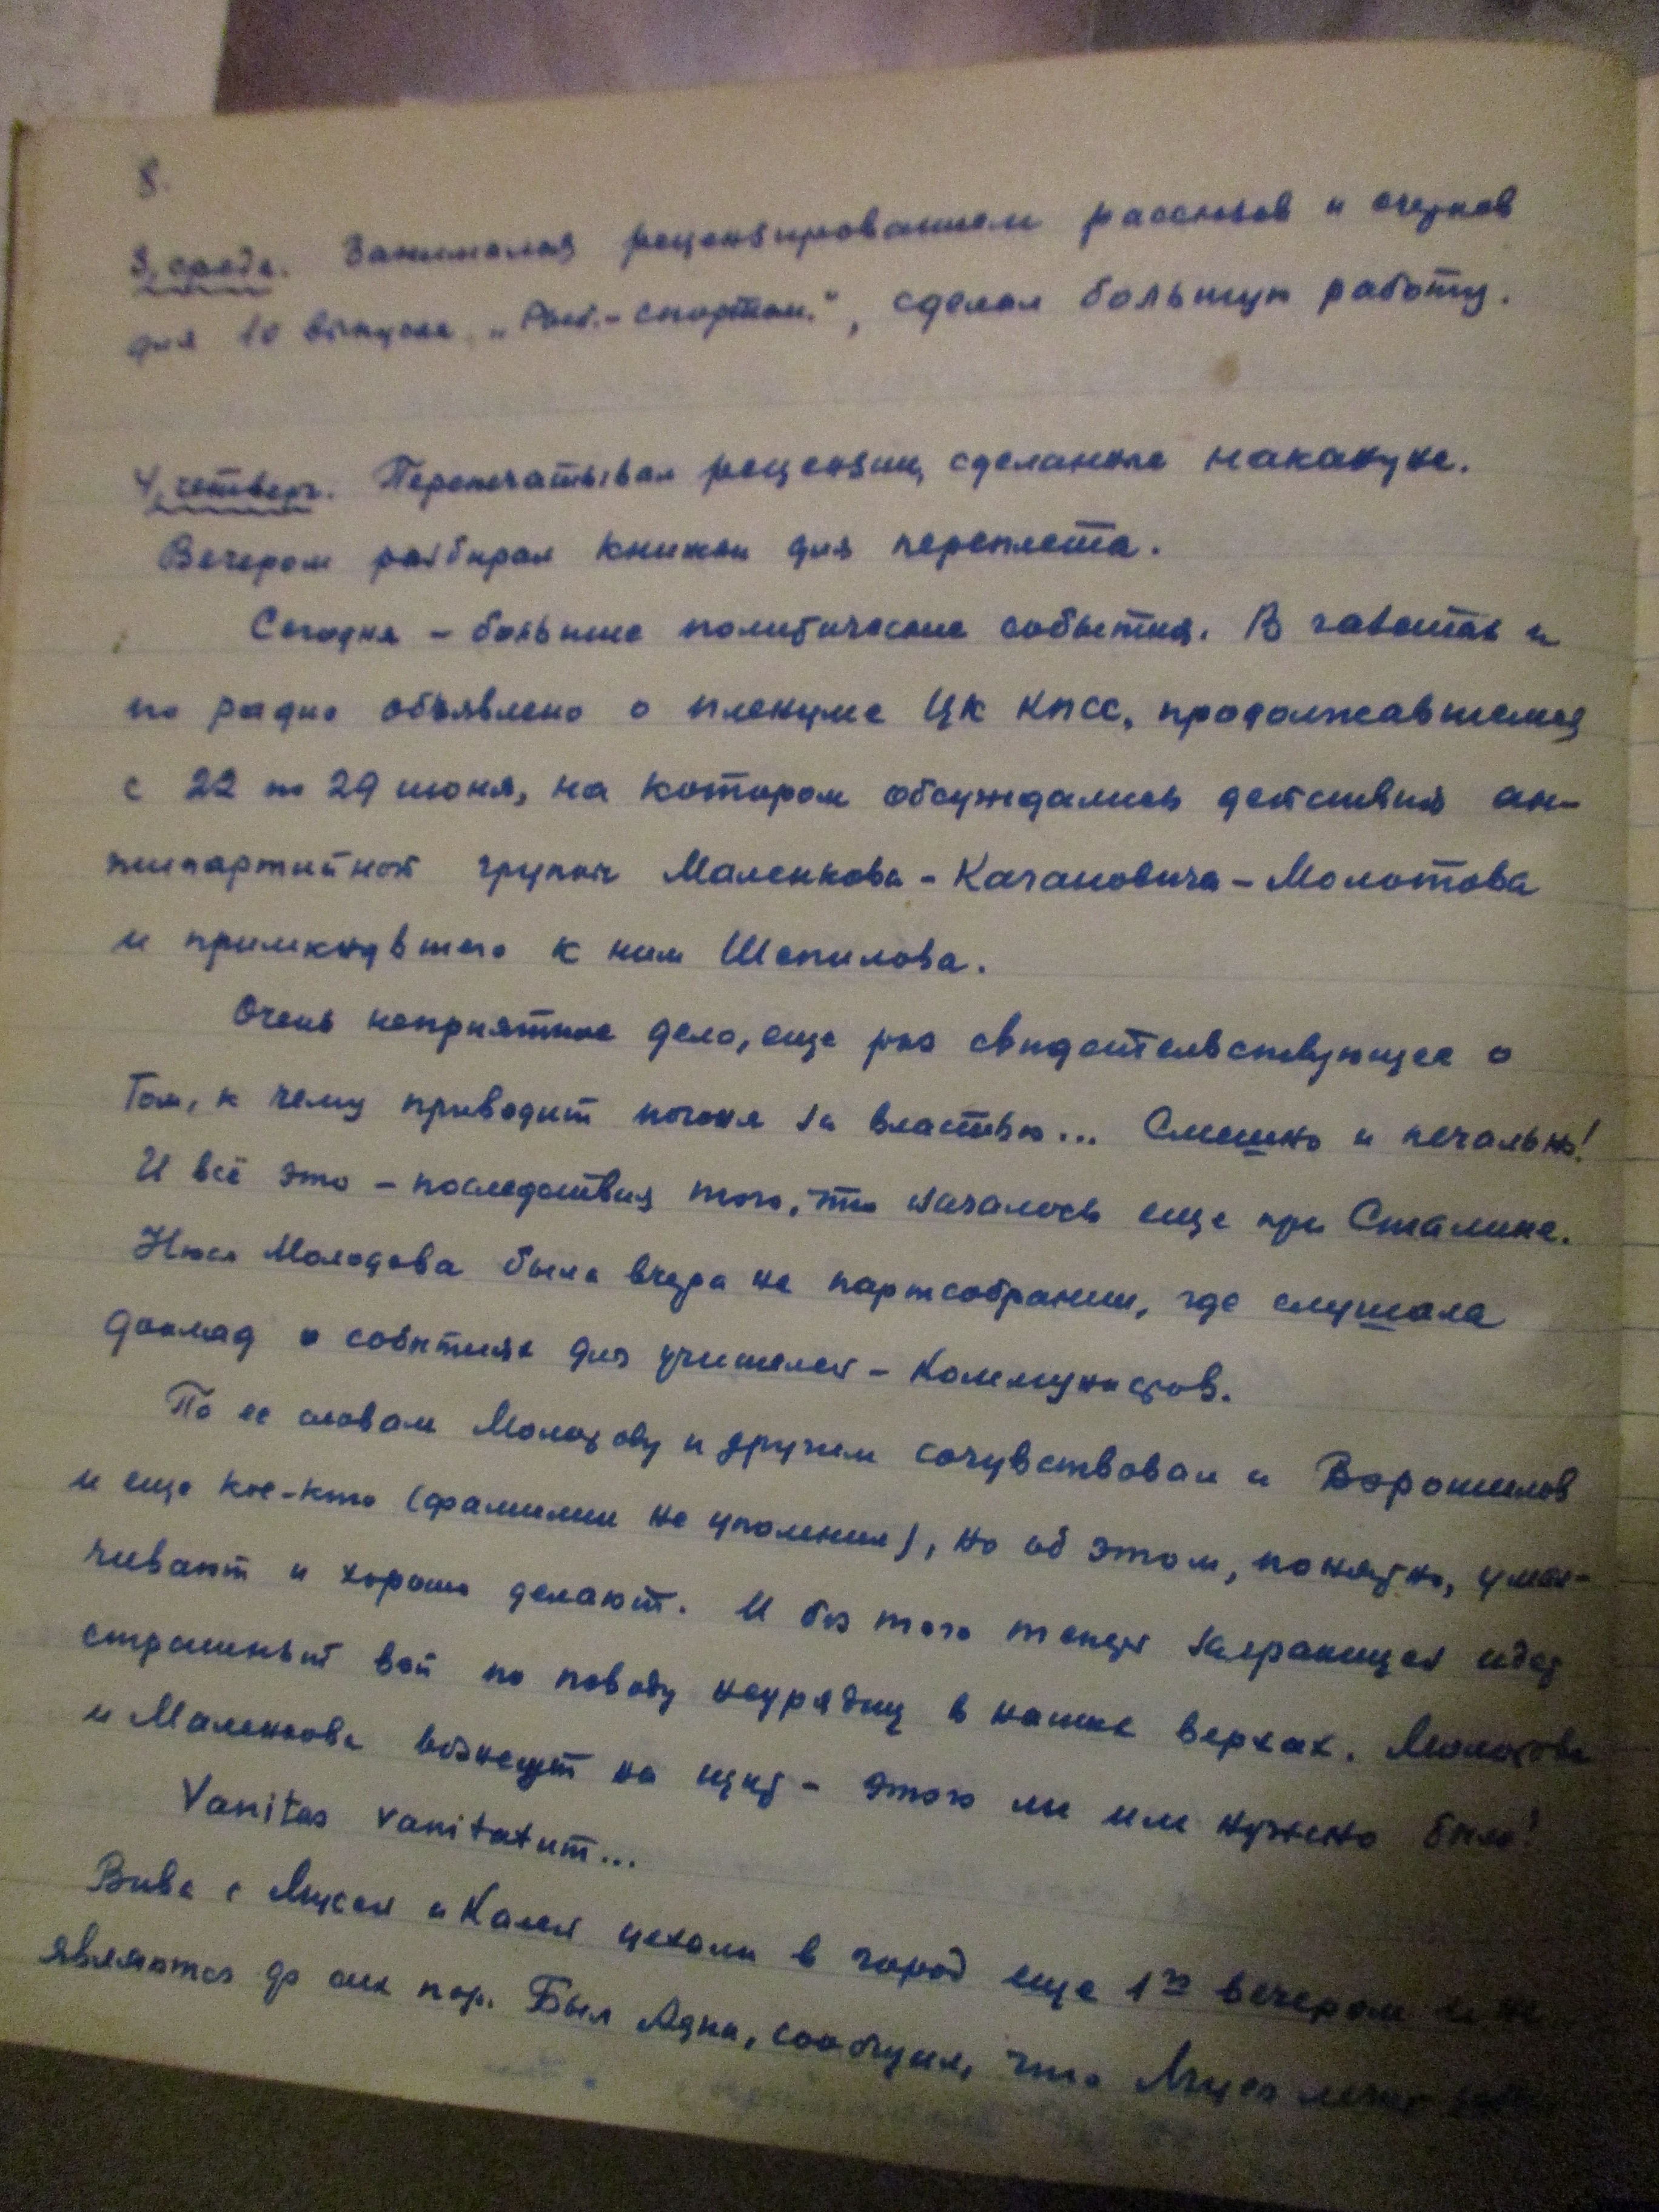 8.
3, среда. Занимался рецензированием рассказов и очерков
для 10 выпуска „Рыб.-спортсм.", сделал большую работу.
4, четверг. Перепечатывал рецензии, сделанные накануне.
Вечером разбирал книжки для переплета.
Сегодня – большие политические события. В газетах и
по радио объявлено о пленуме ЦК КПСС, продолжавшемся
с 22 по 29 июня, на котором обсуждались действия ан-
типартийной группы Маленкова – Кагановича – Молотова
и примкнувшего к ним Шепилова.
Очень неприятное дело, еще раз свидетельствующее о
том, к чему приводит погоня за властью... Смешно и печально!
И всё это – последствия того, что началось еще при Сталине.
Нюся Молодова была вчера на партсобрании, где слушала
доклад о событиях для учителей – коммунистов.
По ее словам Молотову и другим сочувствовал и Ворошилов
и еще кое-кто (фамилии не упомнил), но об этом, понятно, умал-
чивают и хорошо делают. И без того теперь заграницей идет
страшный вой по поводу неурядиц в наших верхах. Молотова
и Маленкова вознесут на щит – этого ли им нужно было!
Vanitas vanitatum...
Вива с Мусей и Калей уехали в город еще 1го вечером и не
являются до сих пор. Был Адик, сообщил, что Муся лечит